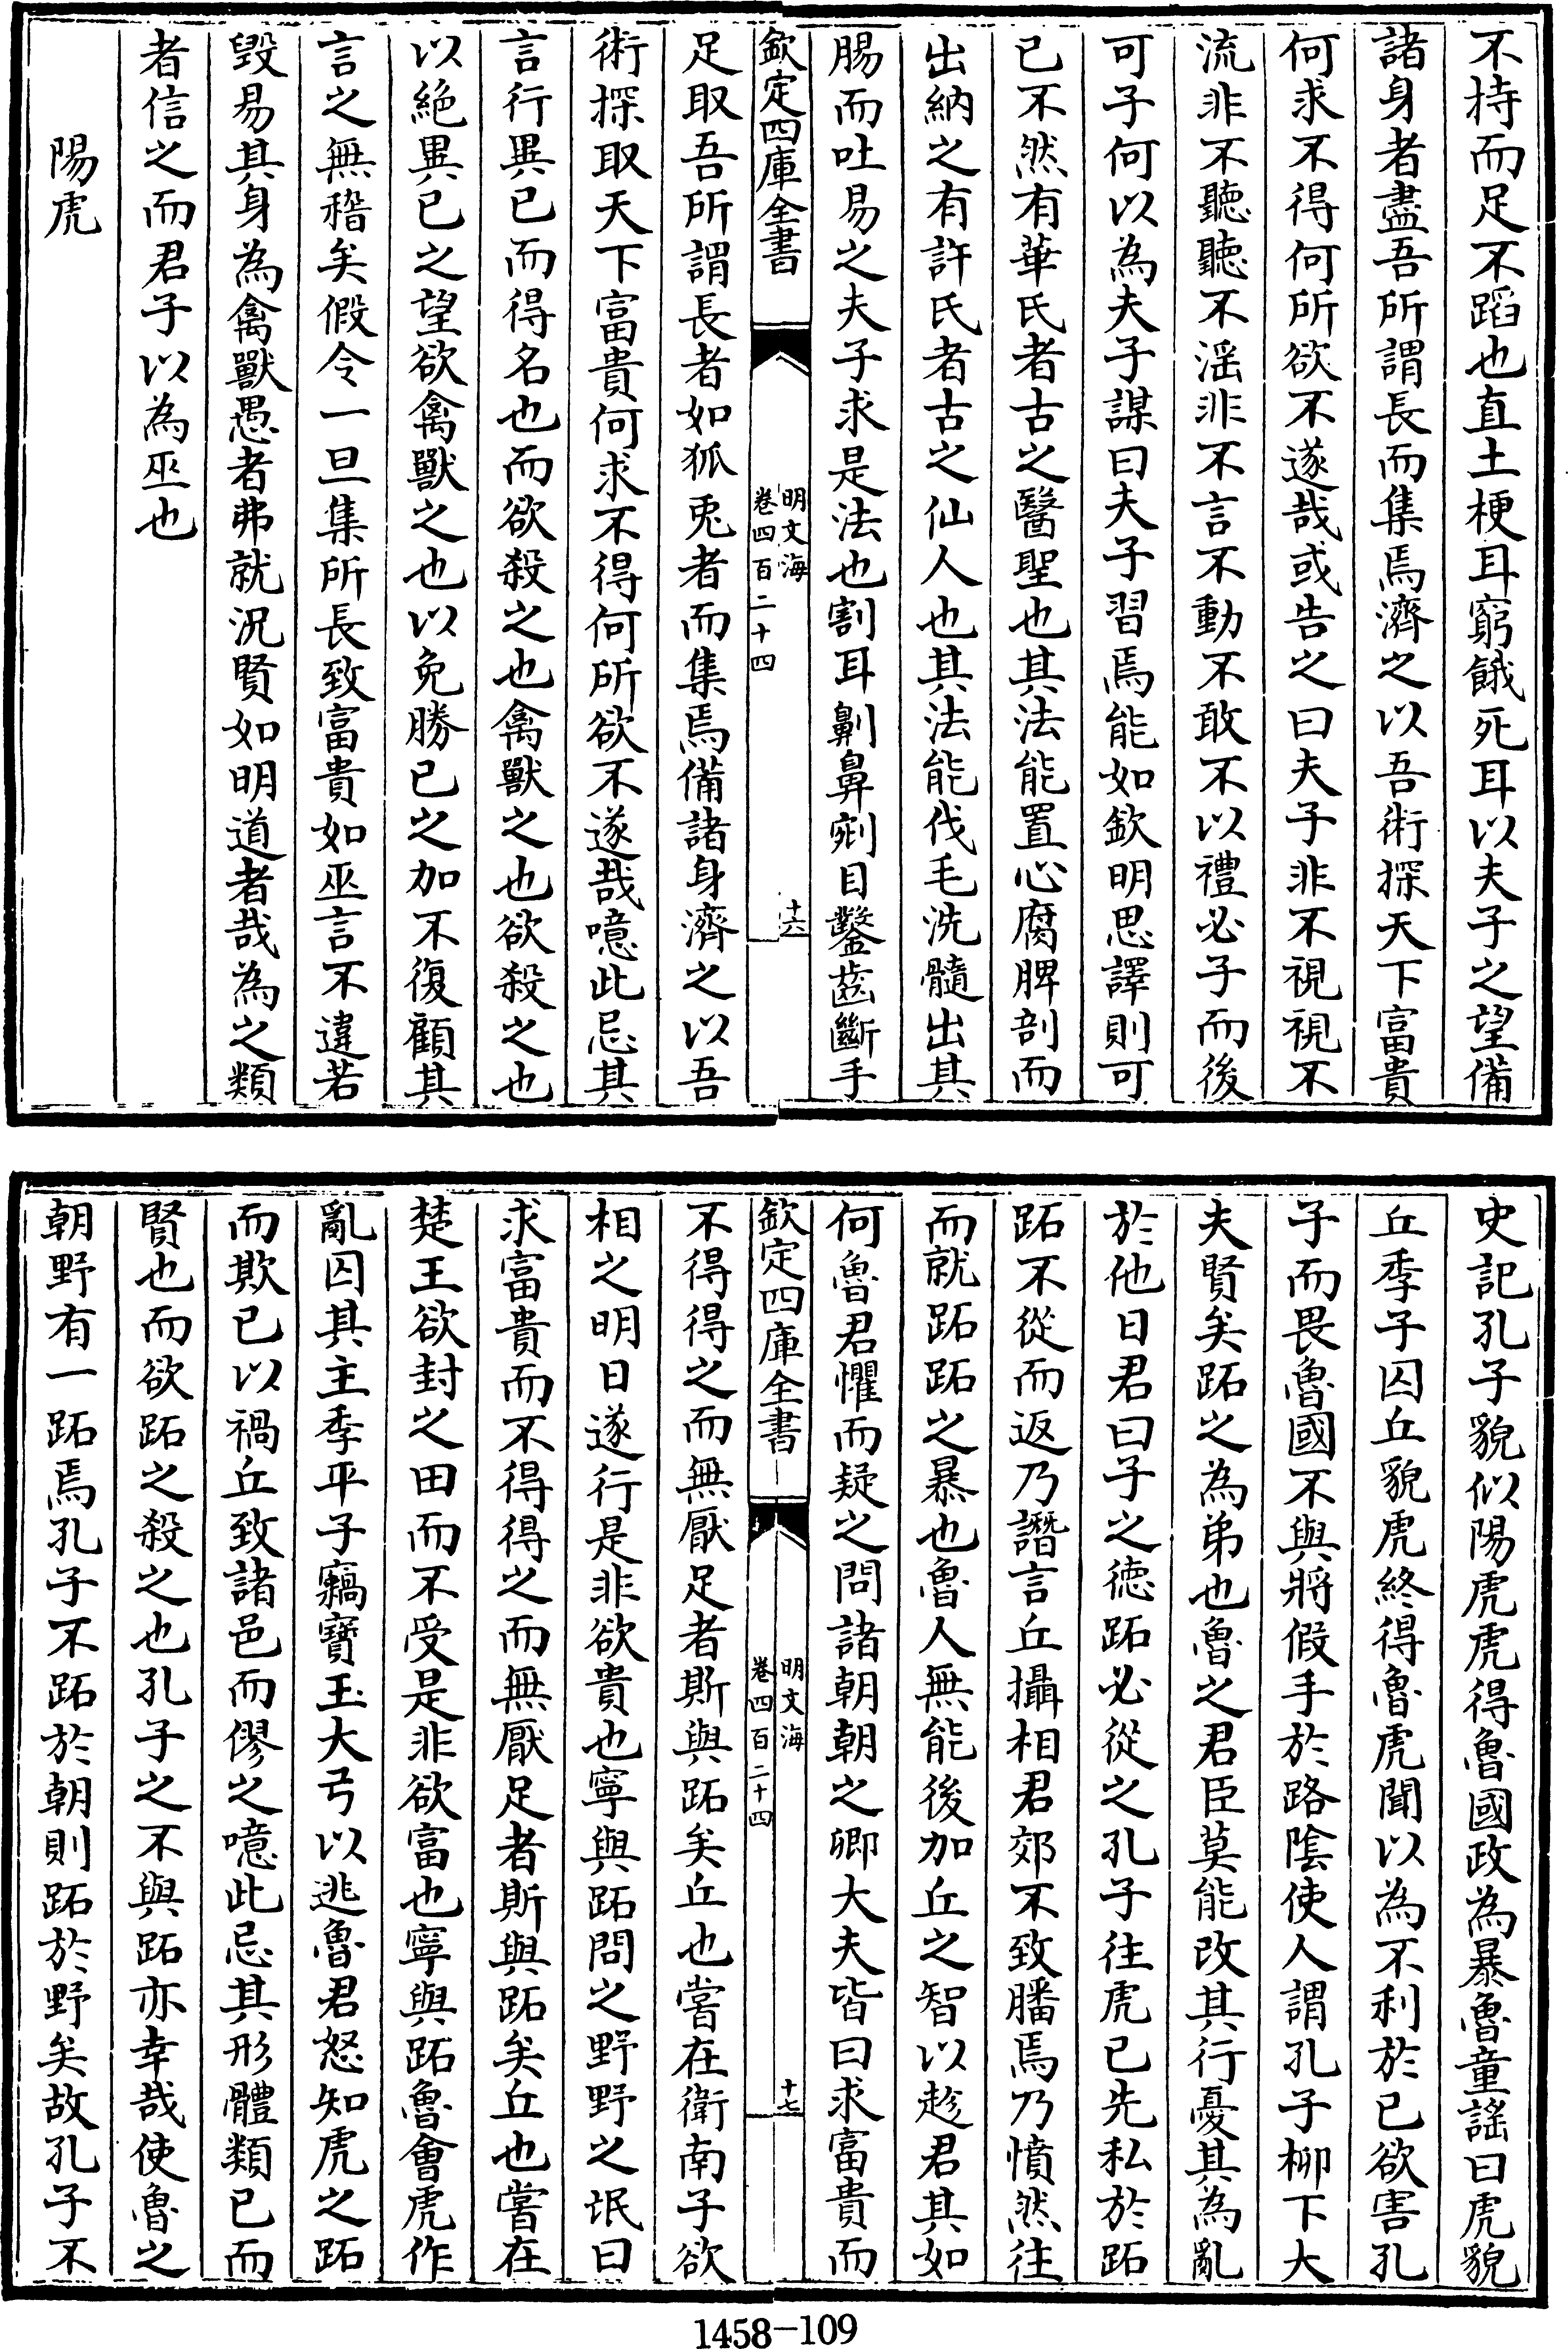 不持而足不蹈也直土梗耳窮餓死耳以夫子之望備
諸身者盡吾所謂長而集焉濟之以吾術探天下富貴
何求不得何所欲不遂哉或告之曰夫子非不視視不
流非不聽聽不滛非不言不動不敢不以禮必子而後
可子何以為夫子謀曰夫子習焉能如欽明思譯則可
已不然有華氏者古之醫聖也其法能置心腐脾剖而
出納之有許氏者古之仙人也其法能伐毛洗髓出其
腸而吐易之夫子求是法也割耳劓鼻剜目鑿齒斷手
欽定四庫全書
明文海
卷四百二十四
十六
足取吾所謂長者如狐兎者而集焉備諸身濟之以吾
術探取天下富貴何求不得何所欲不遂哉噫此忌其
言行異已而得名也而欲殺之也禽獸之也欲殺之也
以絶異已之望欲禽獸之也以免勝已之加不復顧其
言之無稽矣假令一旦集所長致富貴如巫言不違若
毀易其身為禽獸愚者弗就況賢如明道者哉為之類
者信之而君子以為巫也
陽虎
史記孔子貌似陽虎虎得魯國政為暴魯童謡曰虎貌
丘季子囚丘貌虎終得魯虎聞以為不利於已欲害孔
子而畏魯國不與將假手於路隂使人謂孔子柳下大
夫賢矣跖之為弟也魯之君臣莫能改其行憂其為亂
於他日君曰子之徳跖必從之孔子往虎已先私於跖
跖不從而返乃譖言丘攝相君郊不致膰焉乃憤然往
而就跖跖之暴也魯人無能後加丘之智以趁君其如
何魯君懼而疑之問諸朝朝之卿大夫皆曰求富貴而
欽定四庫全書
明文海
卷四百二十四
十七
不得得之而無厭足者斯與跖矣丘也嘗在衛南子欲
相之明日遂行是非欲貴也寧與跖問之野野之氓曰
求富貴而不得得之而無厭足者斯與跖矣丘也嘗在
楚王欲封之田而不受是非欲富也寧與跖魯會虎作
亂囚其主季平子竊寶玉大弓以逃魯君怒知虎之跖
而欺已以禍丘致諸邑而僇之噫此忌其形體類已而
賢也而欲跖之殺之也孔子之不與跖亦幸哉使魯之
朝野有一跖焉孔子不跖於朝則跖於野矣故孔子不
1458-109